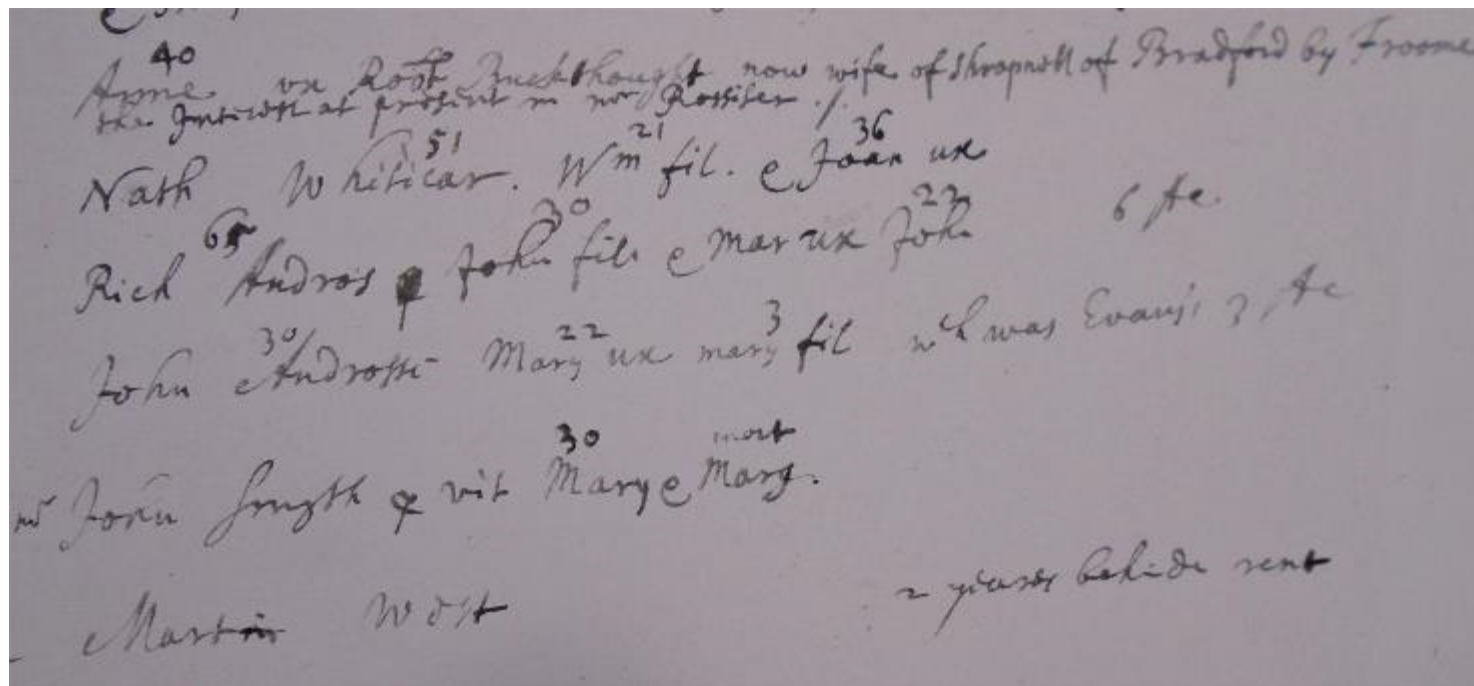 40
Anne ux Robt Buckthought now wife of Shropnell of Bradford by Froome
the Interest at present in mr Rossiter ./.
51 21 36
Nath Whiticar. Wm fil. e Joan ux
65 30 22
Rich Andros p John fil. e Mar ux John 6 Ac.
30 22 3
John Androsse Mary ux mary fil wch was Evans's 3 Ac
30 mort
mr John Smyth p vit Mary e Marg.
Martin West 2 yeares behide rent